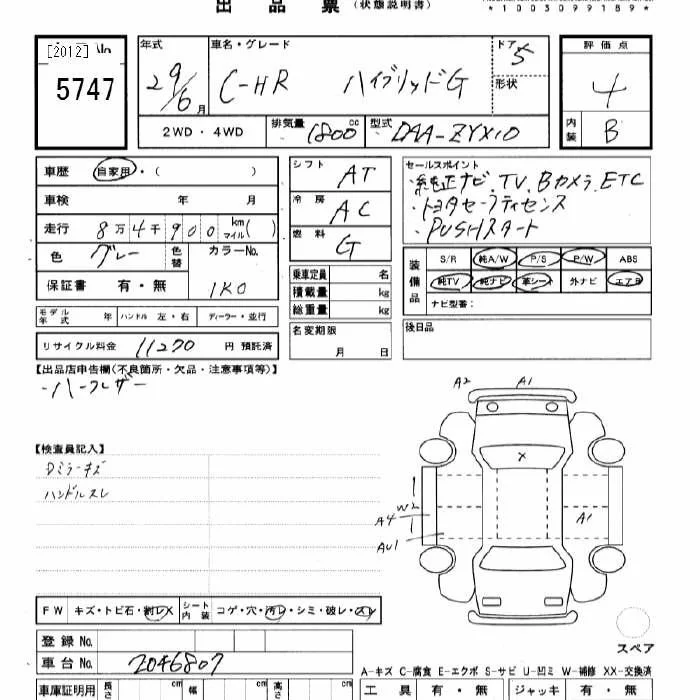 出品票（状態説明書）
*1003099189*
[2012] No.
5747
年式
29/6月
車名・グレード
C-HR ハイブリッドG
ドア
5
形状
評価点
4
内装 B
2WD・4WD
排気量 1800 cc
型式 DAA-ZYX10
車歴 自家用・（ ）
車検 年 月
走行 8万4千900 km マイル( )
色 グレー 色替 カラーNo.
保証書 有・無 1K0
シフト AT
冷房 AC
燃料 G
乗車定員 名
積載量 kg
総重量 kg
セールスポイント
・純正ナビ.TV.Bカメラ.ETC
・トヨタセーフティセンス
・PUSHスタート
装備品
S/R 純A/W P/S P/W ABS
純TV 純ナビ 革シート 外ナビ エアB
ナビ型番：
モデル年式 年 ハンドル 左・右 ディーラー・並行
名変期限
月 日
後日品
リサイクル料金 11270 円 預託済
【出品店申告欄(不良箇所・欠品・注意事項等)】
・ハーフレザー
A2 A1
【検査員記入】
Dミラーキズ
ハンドルスレ
X
W2
A4
AU1
A1
FW キズ・トビ石・割レX シート内装 コゲ・穴・汚レ・シミ・破レ・スレ
スペア
登録No.
車台No. 2046807
A-キズ C-腐食 E-エクボ S-サビ U-凹ミ W-補修 XX-交換済
車庫証明用 長さ cm 幅 cm 高さ cm
工具 有・無 ジャッキ 有・無